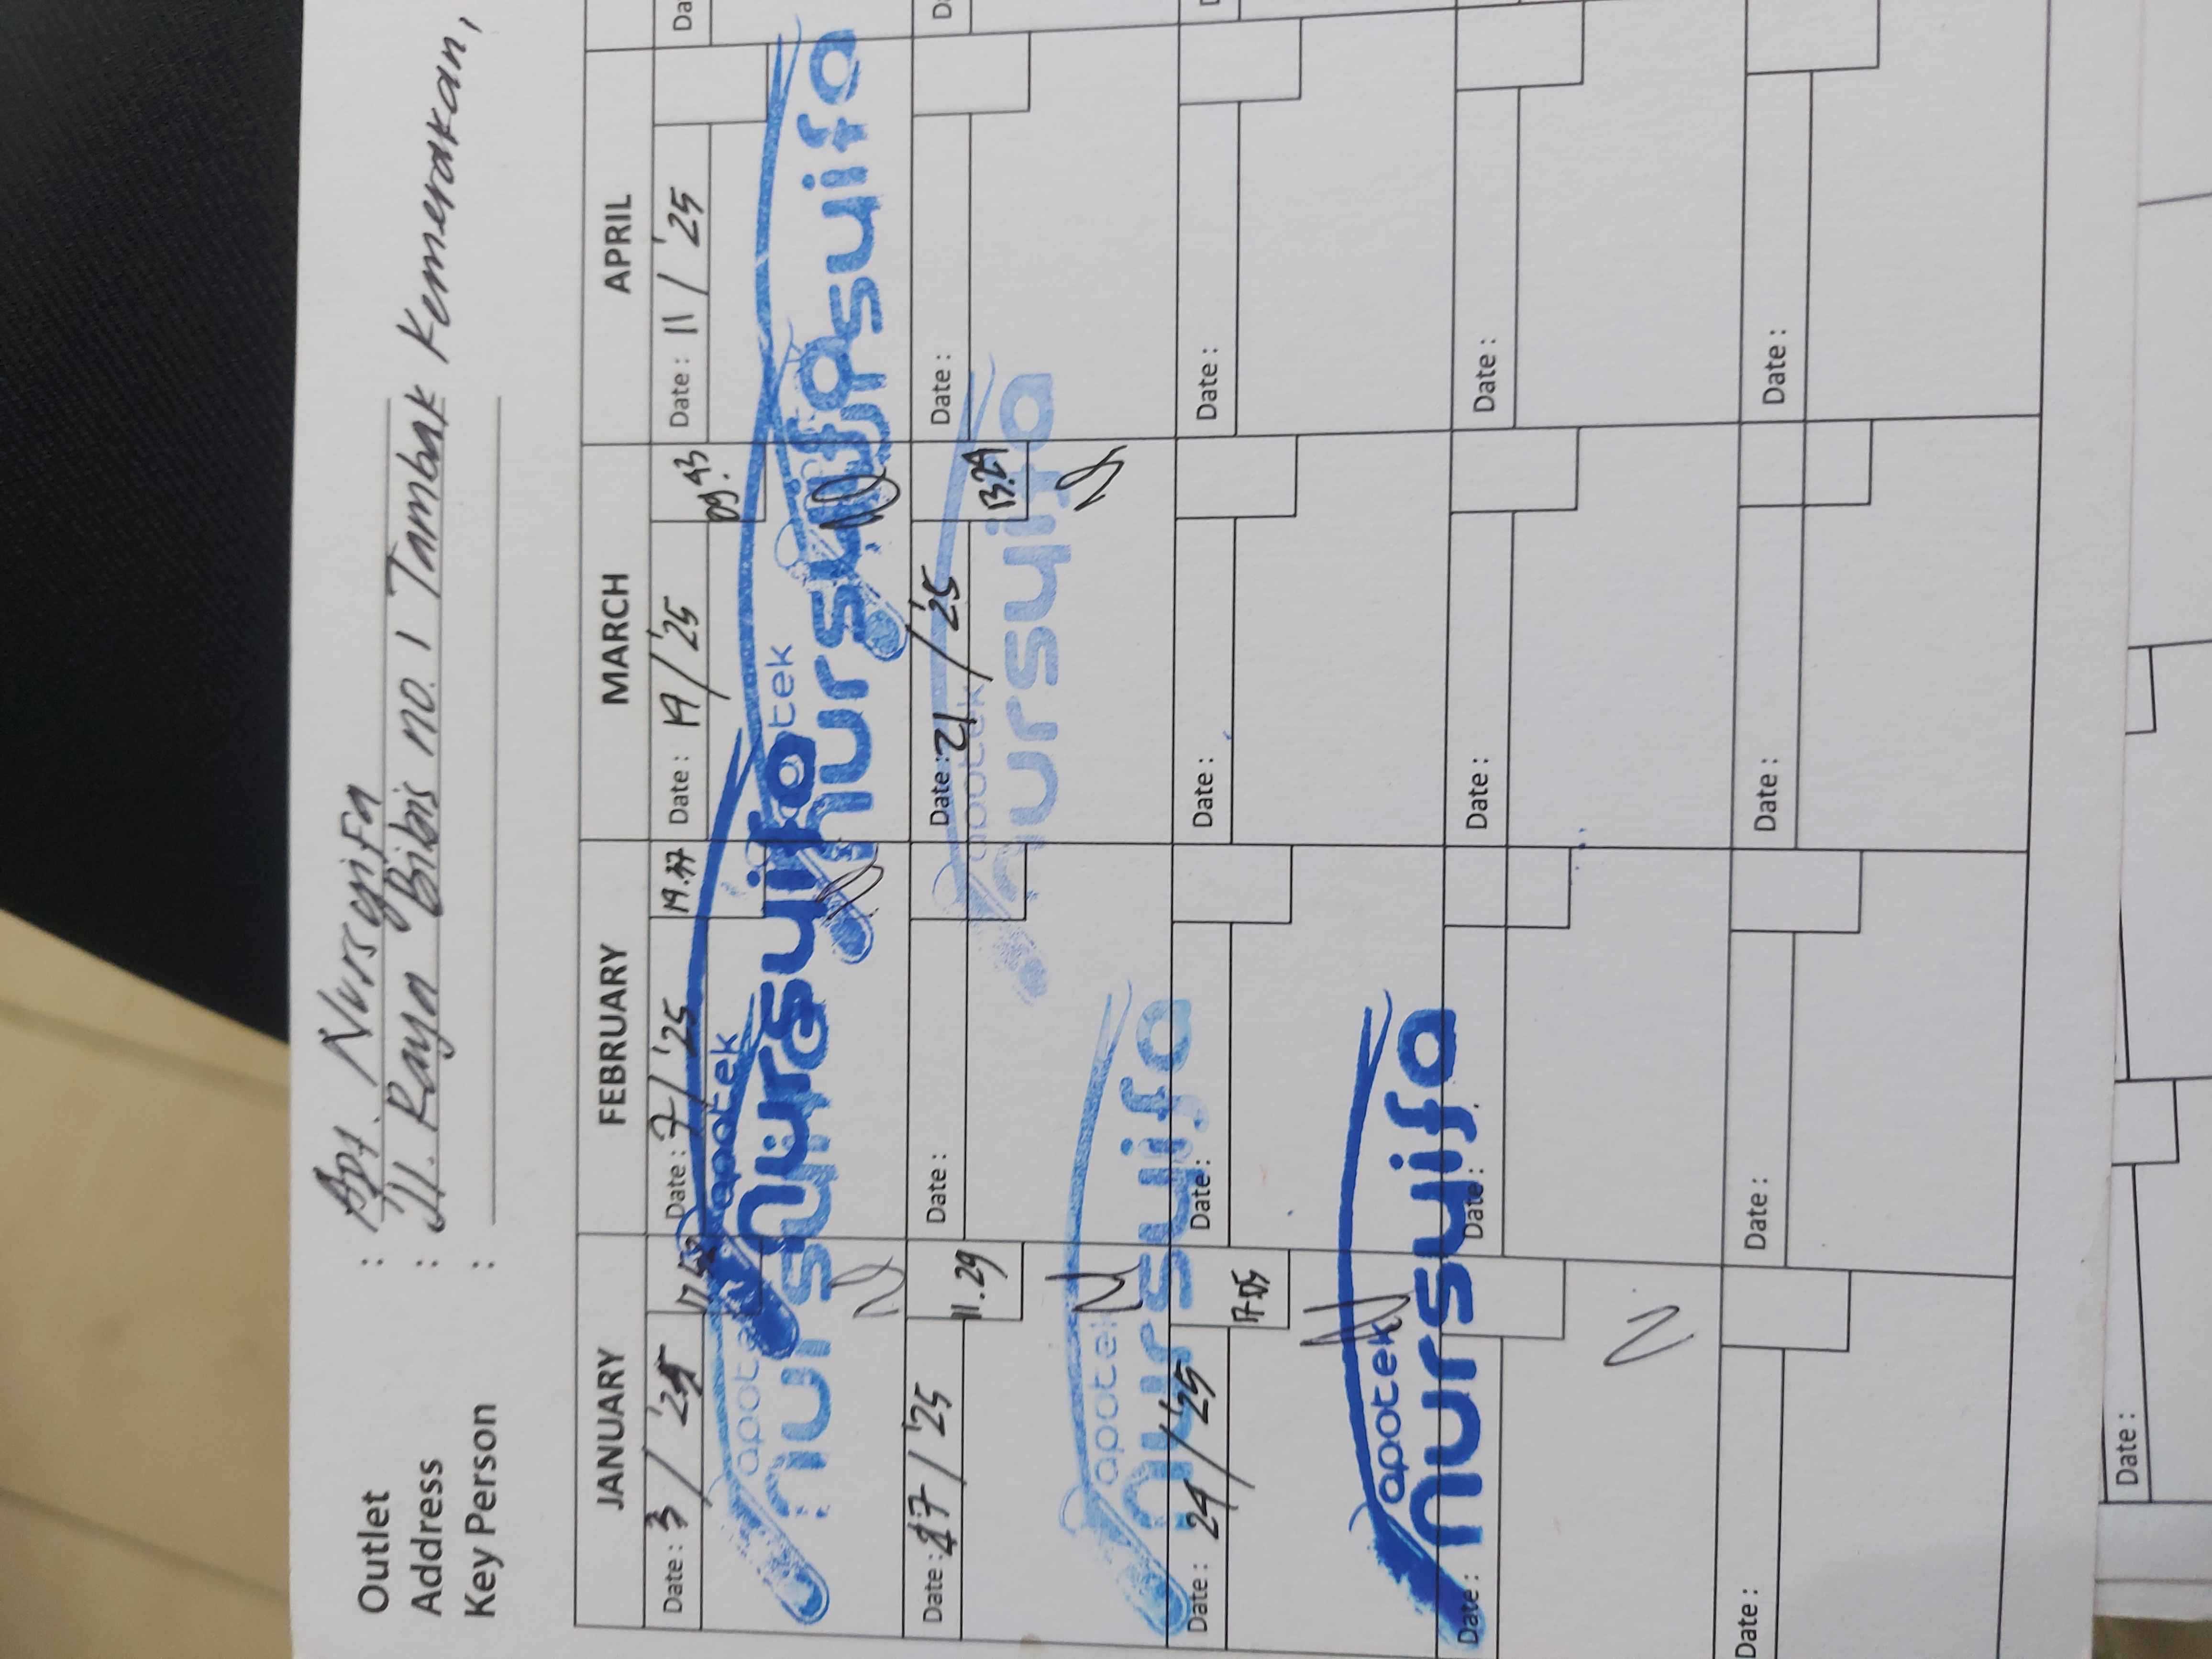 Outlet : Apt. Nursyifa
Address : Jl. Raya Bibis no. 1 Tambak Kemerakan,
Key Person :
JANUARY FEBRUARY MARCH APRIL
Date : 3 / '25 Date : 7 / '25 19.37 Date : 19 / '25 09.43 Date : 11 / '25 Da
apotek nursyifa
apotek nursyifa
apotek nursyifa
nursyifa
Date : 17 / '25 11.29 Date : Date : 21 / '25 13.29 Date : Da
apotek nursyifa
apotek nursyifa
Date : 24 / '25 17.05 Date : Date : Date :
apotek nursyifa
Date : Date : Date : Date :
Date : Date : Date : Date :
Date :